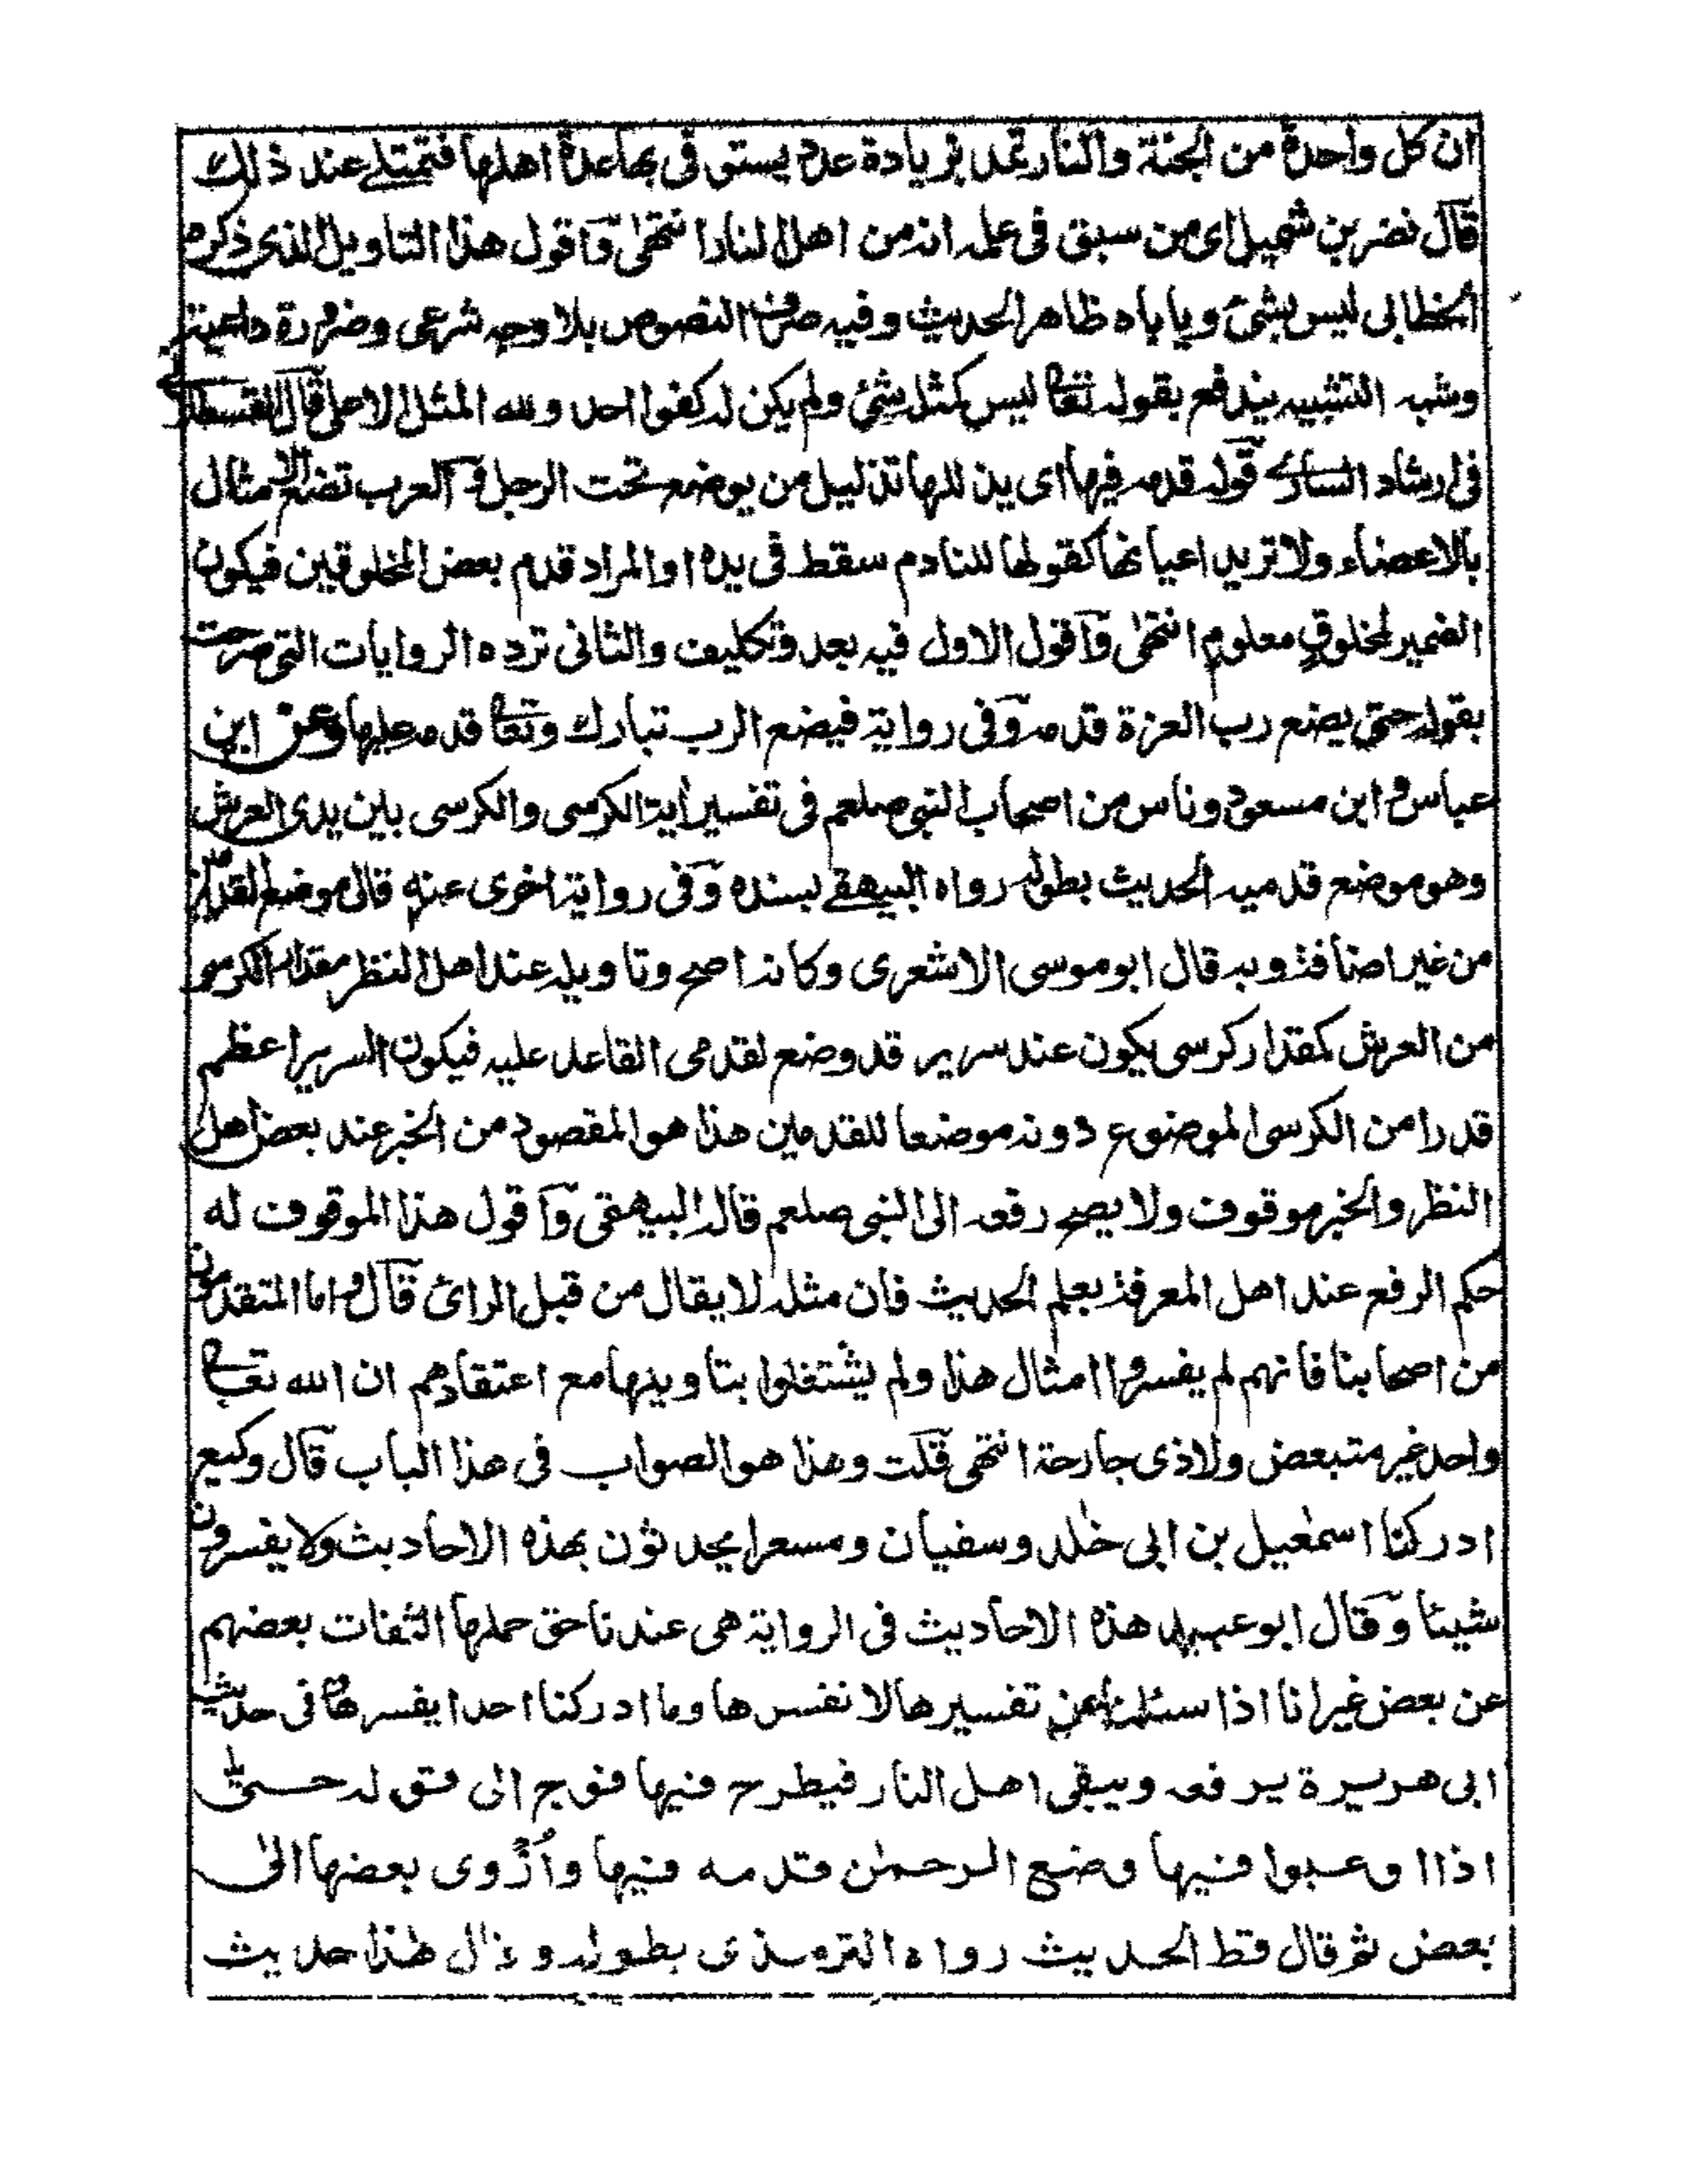 ان كل واحدة من الجنة والنار تمد بزيادة عدد يستوفى بها عدة اهلها فتمتلئ عند ذلك
قال نضر بن شميل اى من سبق فى علمه انه من اهل النار انتهىٰ واقول هذا التاويل الذى ذكره
الخطابى ليس بشئ وياباه ظاهر الحديث وفيه صرف النصوص بلا وجه شرعى وضرورة داعية
وشبه التشبيه يندفع بقوله تعالى ليس كمثله شئ ولم يكن له كفوا احد ولله المثل الاعلى قال القسطلانى
فى ارشاد السارى قوله قدمه فيها اى يذللها تذليل من يوضع تحت الرجل والعرب تضع الامثال
بالاعضاء ولا تريد اعيانها كقولها للنادم سقط فى يده او المراد قدم بعض المخلوقين فيكون
الضمير لمخلوق معلوم انتهىٰ واقول الاول فيه بعد وتكليف والثانى ترده الروايات التى صرحت
بقوله حتى يضع رب العزة قدمه وفى رواية فيضع الرب تبارك وتعالى قدمه عليها وعن ابن
عباس و ابن مسعود وناس من اصحاب النبى صلعم فى تفسير اية الكرسى والكرسى بين يدى العرش
وهو موضع قدميه الحديث بطوله رواه البيهقى بسنده وفى رواية اخرى عنه قال موضع القدمين
من غير اضافة وبه قال ابو موسى الاشعرى وكانه اصح وتاويله عند اهل النظر مقدار الكرسى
من العرش كمقدار كرسى يكون عند سرير قد وضع لقدمى القاعد عليه فيكون السرير اعظم
قدرا من الكرسى الموضوع دونه موضعا للقدمين هذا هو المقصود من الخبر عند بعض اهل
النظر والخبر موقوف ولا يصح رفعه الى النبى صلعم قاله البيهقى واقول هذا الموقوف له
حكم الرفع عند اهل المعرفة بعلم الحديث فان مثله لا يقال من قبل الرائ قال واما المتقدمون
من اصحابنا فانهم لم يفسروا امثال هذا ولم يشتغلوا بتاويلها مع اعتقادهم ان الله تعالى
واحد غير متبعض ولا ذى جارحة انتهى قلت وهذا هو الصواب فى هذا الباب قال وكيع
ادركنا اسمٰعيل بن ابى خٰلد وسفيان ومسعرا يحدثون بهذه الاحاديث ولا يفسرون
شيئا وقال ابو عبيد هذه الاحاديث فى الرواية هى عندنا حق حملها الثقات بعضهم
عن بعض غير انا اذا سئلنا عن تفسيرها لا نفسرها وما ادركنا احدا يفسرها فى حديث
ابى هريرة يرفعه ويبقى اهل النار فيطرح فيها فوج الى قوله حتىٰ
اذا اوعبوا فيها وضع الرحمٰن قدمه فيها واُزوى بعضها الىٰ
بعض ثم قال قط الحديث رواه الترمذى بطوله وقال هٰذا حديث